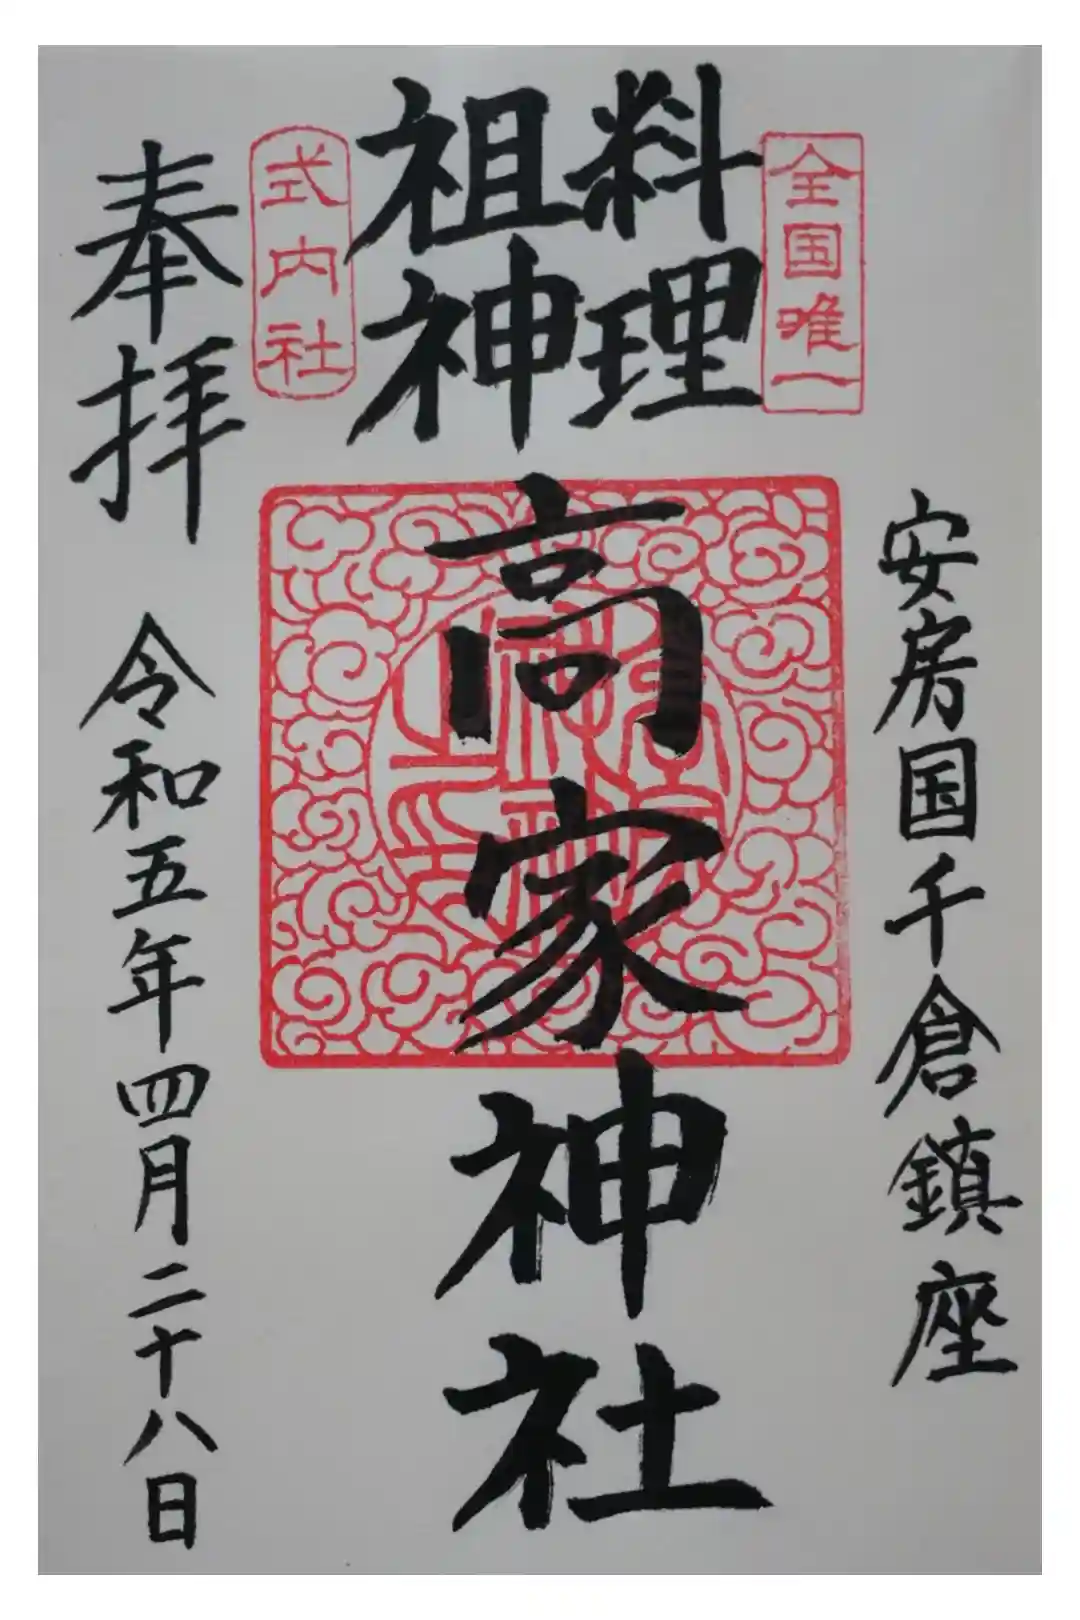 全国唯一
料理
祖神
高家神社
安房国千倉鎮座
式内社
奉拝
令和五年四月二十八日